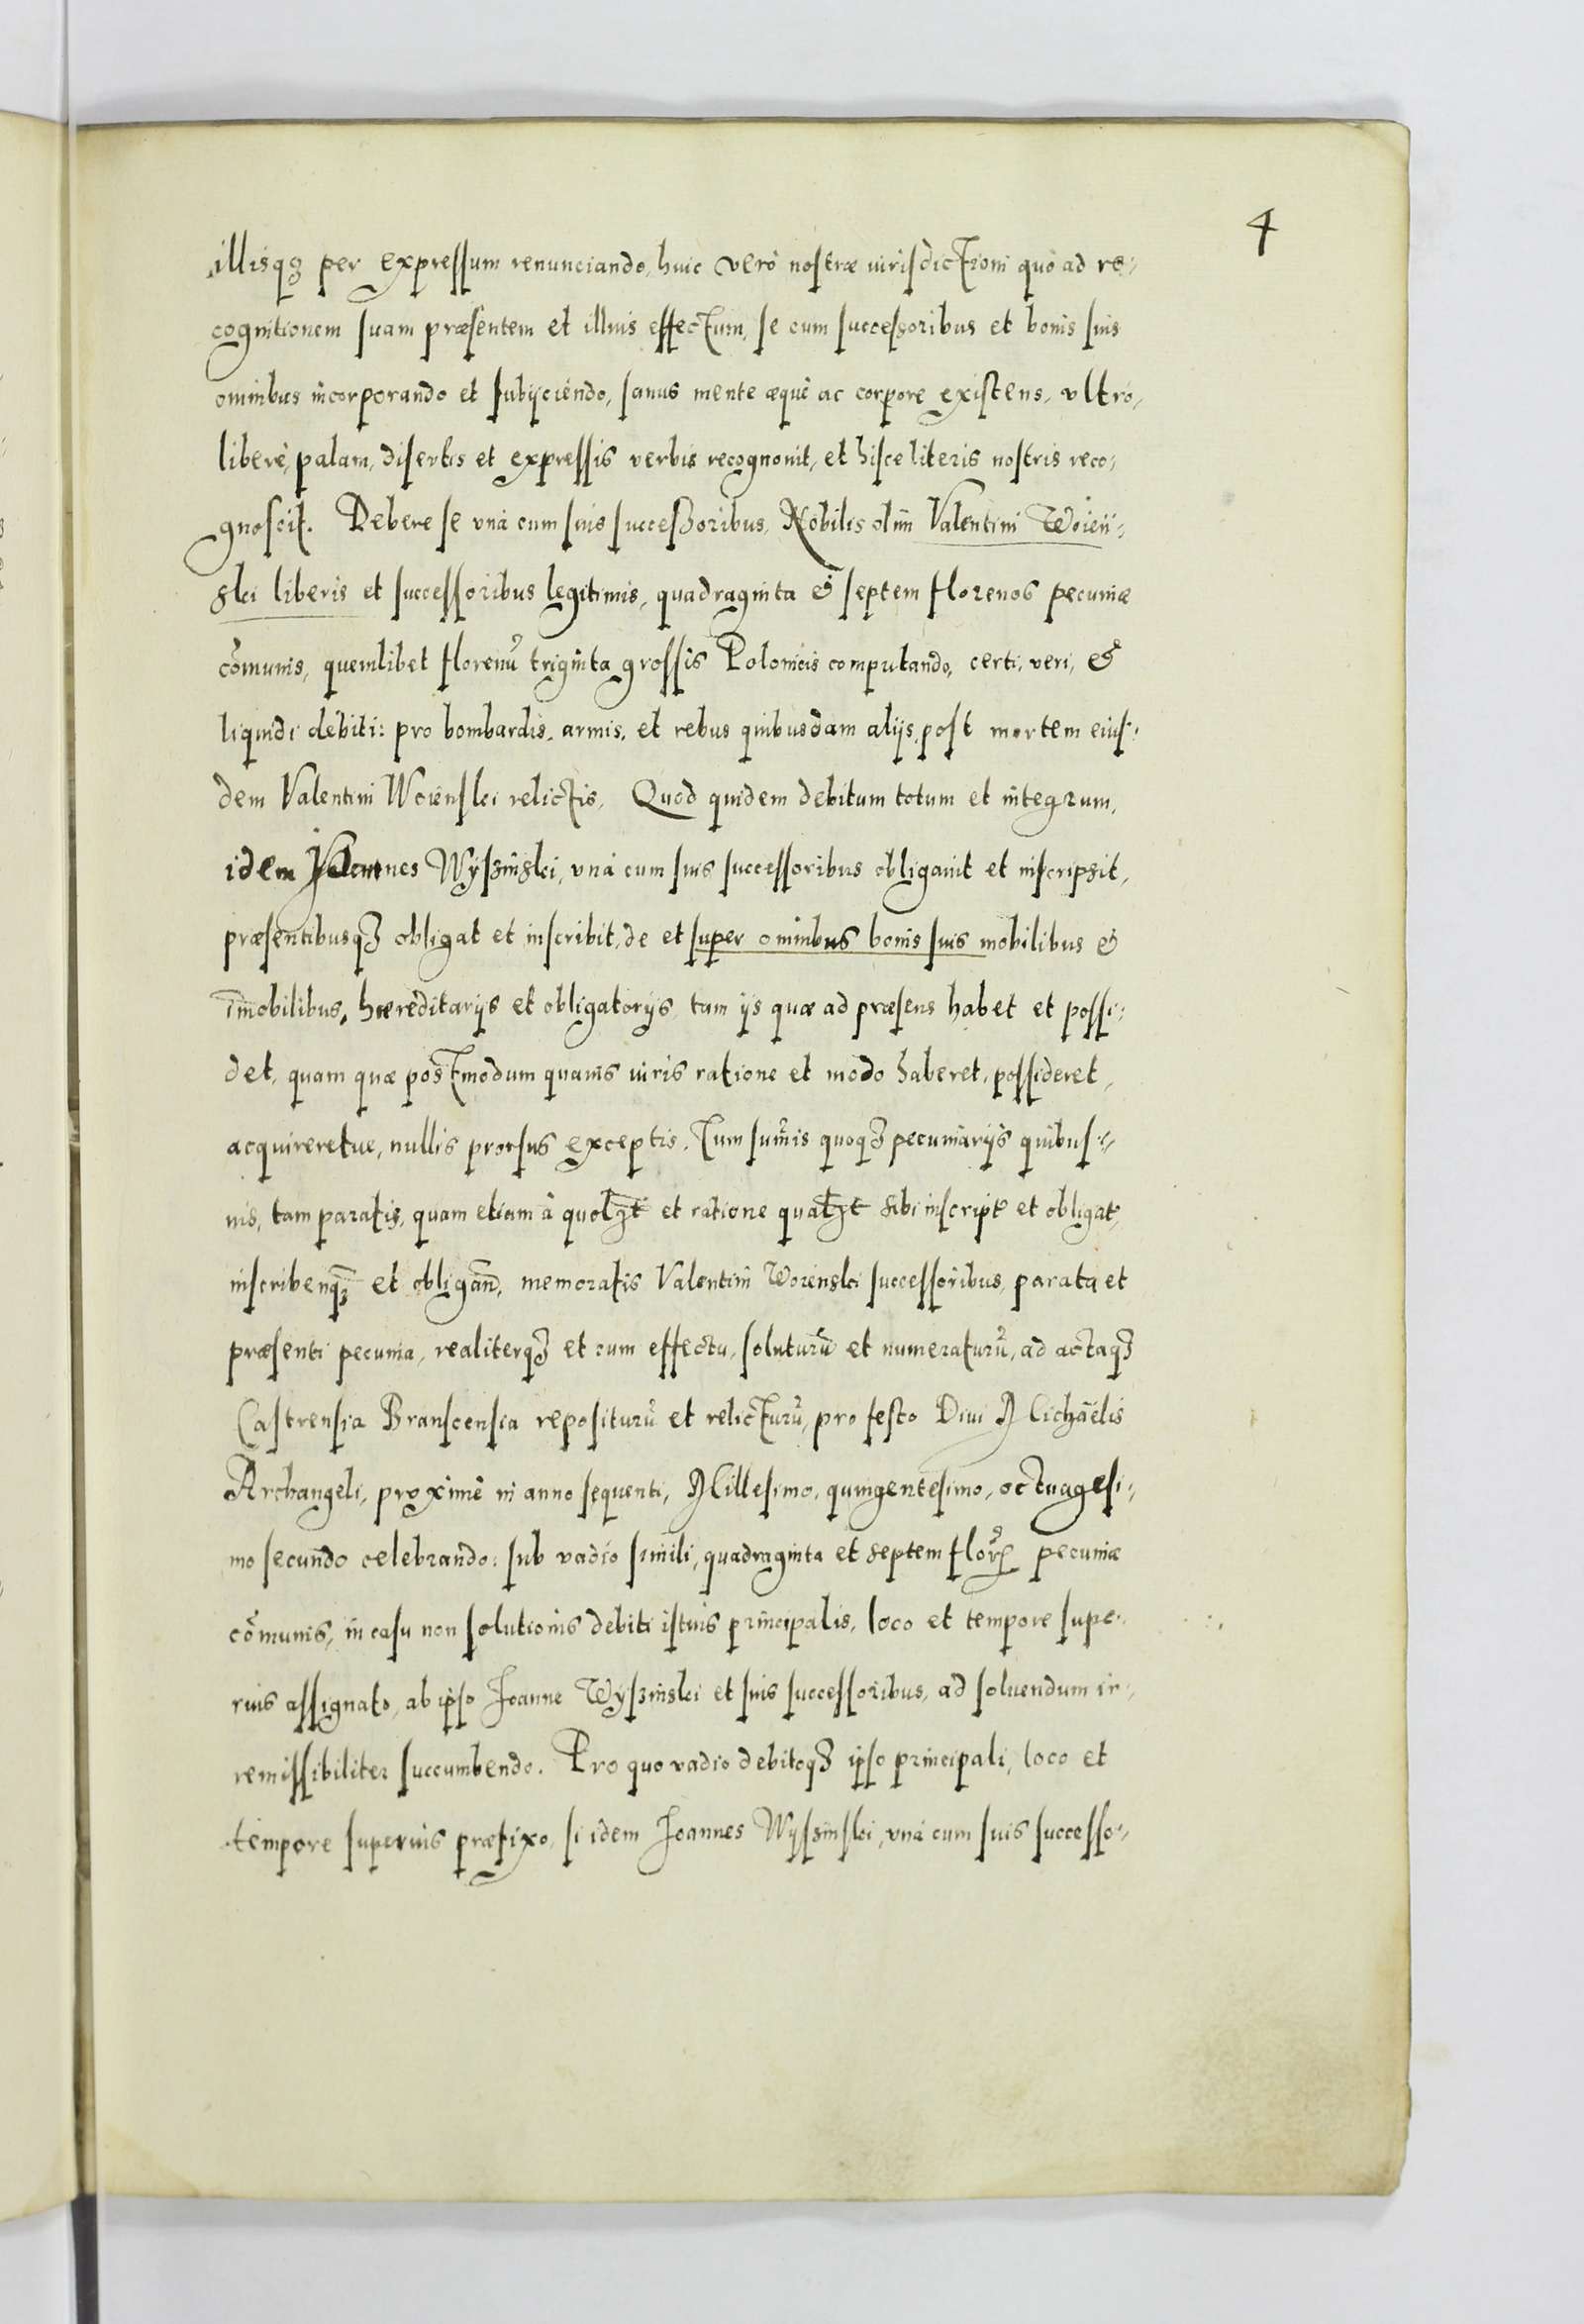 4
illisq3 per expressum renunciando, huic verò nostræ iurisdictioni quò ad re-
cognitionem suam præsentem et illius effectum, se cum successoribus et bonis suis
omnibus incorporando et subijciendo, sanus mente æquè ac corpore existens, vltrò,
liberè, palam, disertis et expressis verbis recognouit, et hisce literis nostris reco-
gnoscit. Debere se vnà cum suis successoribus, Nobilis olim Valentini Woien-
skj liberis et successoribus legitimis, quadraginta & septem florenos pecuniæ
cõmunis, quemlibet florenũ triginta grossis Polonicis computando, certi, veri, &
liquidi debiti: pro bombardis, armis, et rebus quibusdam alijs, post mortem eius-
dem Valentini Woienskj relictis, Quod quidem debitum totum et integrum,
idem Joannes Wyssinskj, vnà cum suis successoribus obligauit et inscripsit,
præsentibusq3 obligat et inscribit, de et super omnibus bonis suis mobilibus &
im̃obilibus, hæreditarijs et obligatorijs, tam ijs quæ ad præsens habet et possi-
det, quam quæ postmodum quauis iuris ratione et modo haberet, possideret,
acquireretue, nullis prorsus exceptis. Tum sum̃is quoq3 pecuniarijs quibus-
uis, tam paratis, quam etiam à quolzt et ratione qualzt sibi inscript et obligat,
inscribenq3 et obligan̄, memoratis Valentini Woienskj successoribus, parata et
præsenti pecunia, realiterq3 et cum effectu, soluturũ et numeraturũ, ad actaq3
Castrensia Branscensia repositurũ et relicturũ, pro festo Diui Michaëlis
Archangeli, proximè in anno sequenti, Millesimo, quingentesimo, octuagesi-
mo secundo celebrando: sub vadio simili, quadraginta et septem flor pecuniæ
cõmunis, in casu non solutionis debiti istius principalis, loco et tempore supe-
rius assignato, ab ipso Joanne Wyszinskj et suis successoribus, ad soluendum ir-
remissibiliter succumbendo. Pro quo vadio debitoq3 ipso principali, loco et
tempore superius præfixo, si idem Joannes Wyszinskj, vnà cum suis successo-